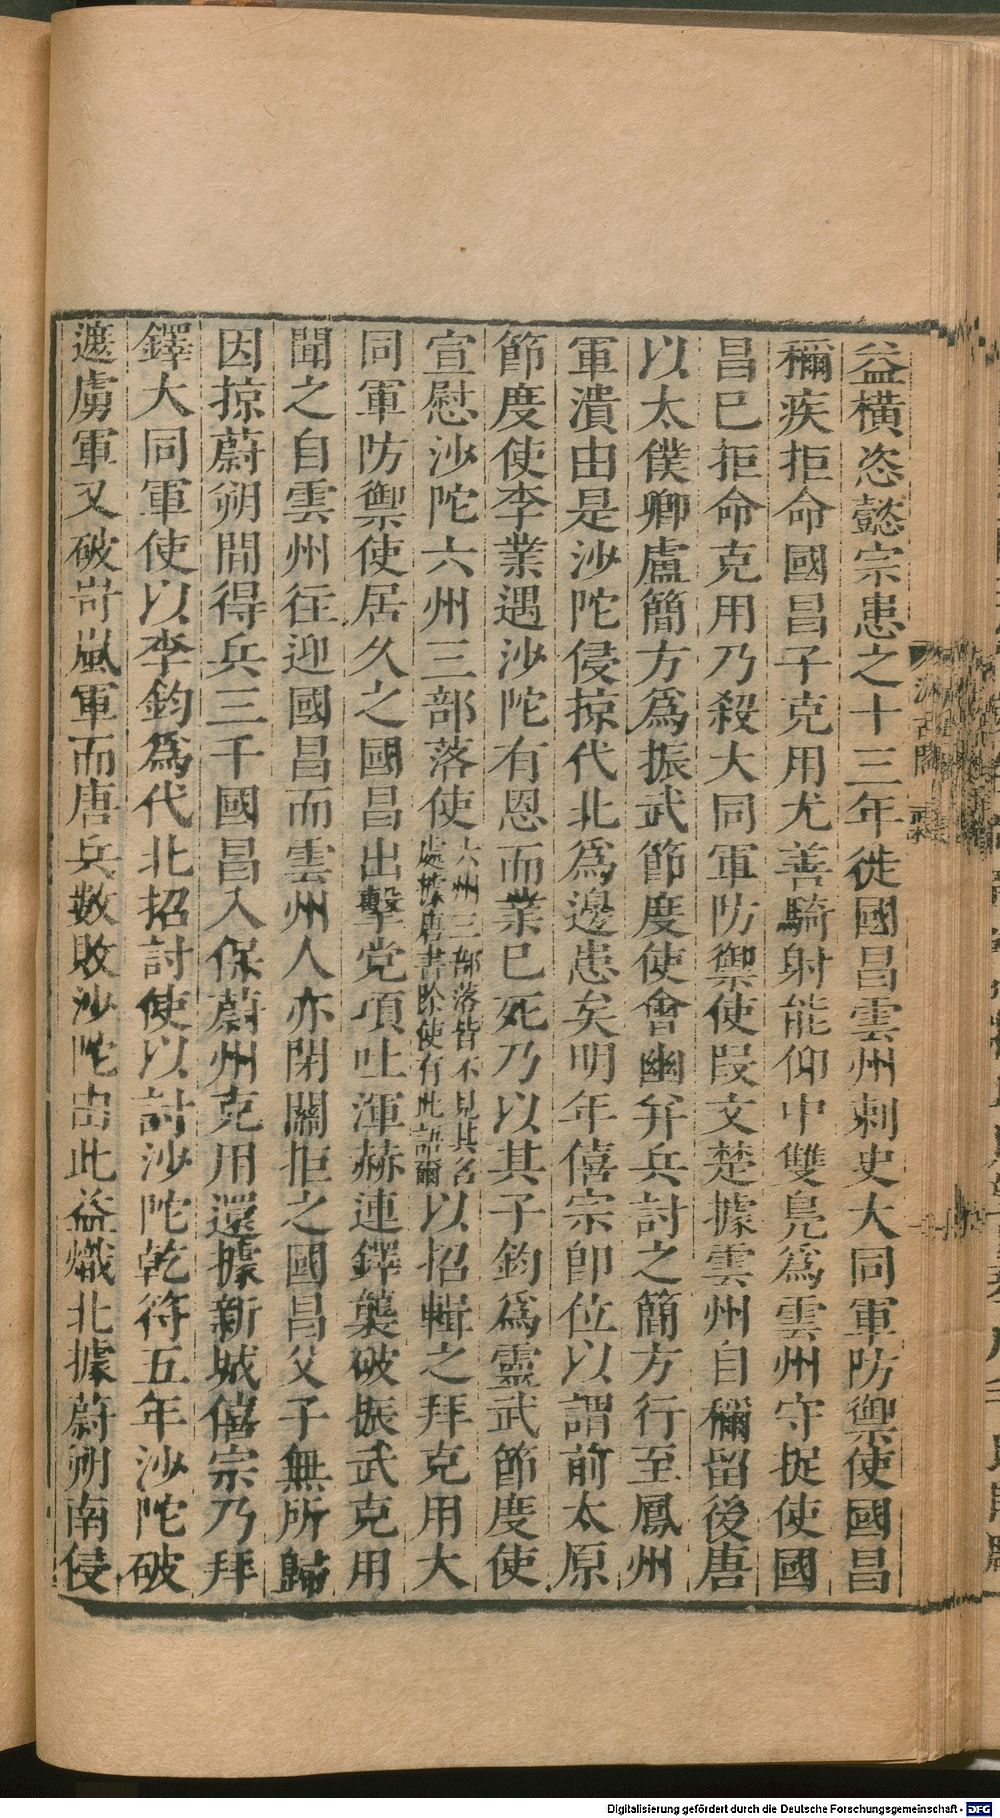 益橫恣懿宗患之十三年徙國昌雲州刺史大同軍防禦使國昌
稱疾拒命國昌子克用尤善騎射能仰中雙鳧爲雲州守捉使國
昌已拒命克用乃殺大同軍防禦使段文楚據雲州自稱留後唐
以太僕卿盧簡方爲振武節度使會幽并兵討之簡方行至嵐州
軍潰由是沙陀侵掠代北爲邊患矣明年僖宗卽位以謂前太原
節度使李業遇沙陀有恩而業已死乃以其子鈞爲靈武節度使
宣慰沙陀六州三部落使六州三部落皆不見其名處據唐書除使有此語爾以招輯之拜克用大
同軍防禦使居久之國昌出擊党項吐渾赫連鐸襲破振武克用
聞之自雲州往迎國昌而雲州人亦閉關拒之國昌父子無所歸
因掠蔚朔間得兵三千國昌入保蔚州克用還據新城僖宗乃拜
鐸大同軍使以李鈞爲代北招討使以討沙陀乾符五年沙陀破
遮虜軍又破岢嵐軍而唐兵數敗沙陀由此益熾北據蔚朔南侵
汲古閣
Digitalisierung gefördert durch die Deutsche Forschungsgemeinschaft - DFG